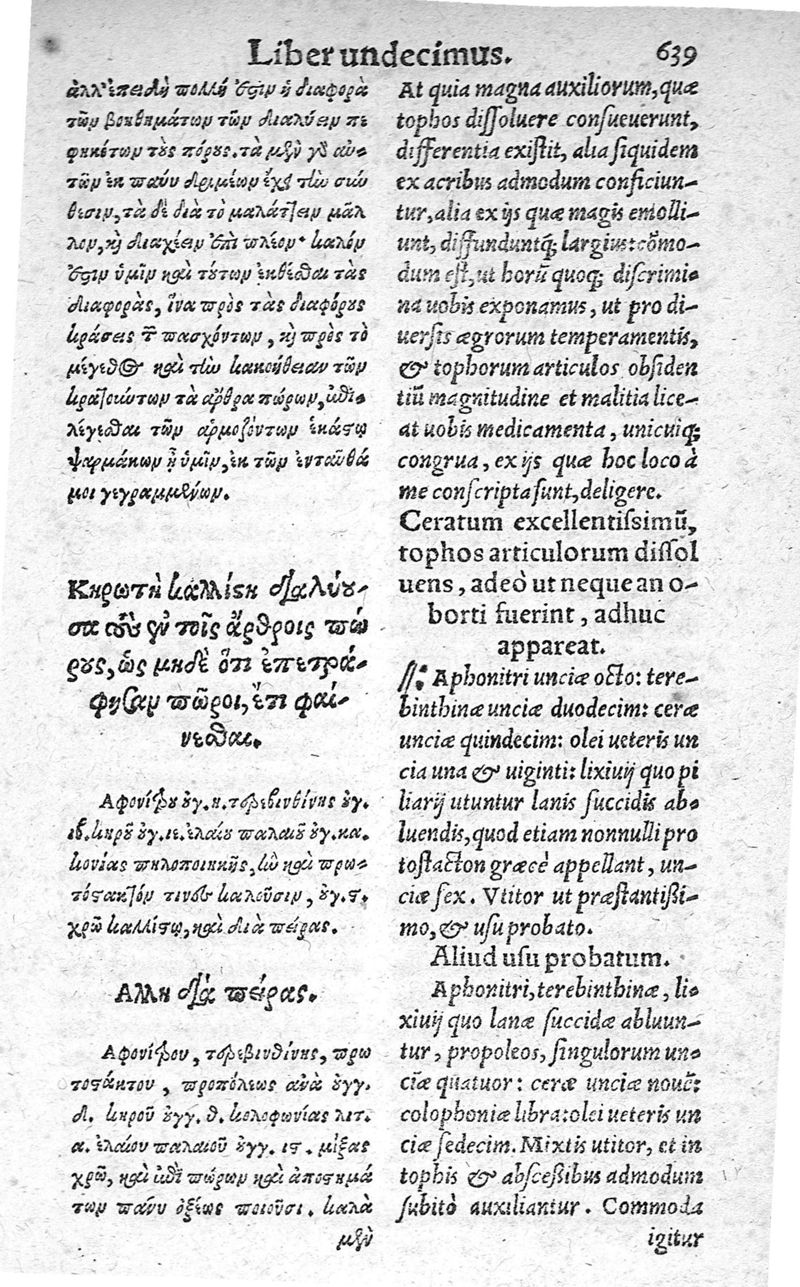 Liber undecimus. 639
ἀλλ' ἐπειδὴ πολλή ἐστιν ἡ διαφορὰ
τῶν βοηθημάτων τῶν διαλύειν πε
φυκότων τοὺς πόρους. τὰ μὲν γὸ αὐ-
τῶν ἐκ πάνυ δριμέων ἔχει τὴν σύν
θεσιν, τὰ δὲ διὰ τὸ μαλάττειν μᾶλ
λον, καὶ διαχέειν ἐπὶ πλέον· καλόν
ἐστιν ὑμῖν καὶ τούτων ἐκθέσθαι τὰς
διαφορὰς, ἵνα πρὸς τὰς διαφόρους
κράσεις τῶν πασχόντων, καὶ πρὸς τὸ
μέγεθος καὶ τὴν κακοήθειαν τῶν
κρατούντων τὰ ἄρθρα πώρων, ἐπι-
λέγεσθαι τῶν ἁρμοζόντων ἑκάστῳ
φαρμάκων ᾖ ὑμῖν, ἐκ τῶν ἐνταῦθά
μοι γεγραμμένων.
Κηρωτὴ καλλίστη διαλύου-
σα τοὺς ἐν τοῖς ἄρθροις πώ
ρους, ὡς μηδὲ ὅτι ἐπετρά-
φησαν πῶροι, ἔτι φαί-
νεσθαι.
Αφονίτρου ὀυγ. η. τερεβινθίνης ὀυγ.
ιβ. κηροῦ ὀυγ. ιε. ἐλαίου παλαιοῦ ὀυγ. κα.
κονίας πηλοποιικῆς, ἣν καὶ πρω-
τόστακτόν τινες καλοῦσιν, ὀυγ. ϛ.
χρῶ καλλίστῳ, καὶ διὰ πείρας.
Αλλη διὰ πείρας.
Αφονίτρου, τερεβινθίνης, πρω
τοστάκτου, προπόλεως ἀνὰ ὀυγγ.
δ. κηροῦ ὀυγγ. θ. κολοφωνίας λιτ.
α. ἐλαίου παλαιοῦ ὀυγγ. ιϛ. μίξας
χρῶ, καὶ ἐπὶ πώρων καὶ ἀποστημά
των πάνυ ὀξέως ποιοῦσι. καλὰ
μὲν
At quia magna auxiliorum, quæ
tophos dissoluere consueuerunt,
differentia existit, alia siquidem
ex acribus admodum conficiun-
tur, alia ex ijs quæ magis emolli-
unt, diffunduntq; largius: cõmo-
dum est, ut horũ quoq; discrimi-
na uobis exponamus, ut pro di-
uersis ægrorum temperamentis,
& tophorum articulos obsiden
tiũ magnitudine et malitia lice-
at uobis medicamenta, unicuiq;
congrua, ex ijs quæ hoc loco à
me conscripta sunt, deligere.
Ceratum excellentissimũ,
tophos articulorum dissol
uens, adeò ut neque an o-
borti fuerint, adhuc
appareat.
Aphonitri unciæ octo: tere-
binthinæ unciæ duodecim: ceræ
unciæ quindecim: olei ueteris un
cia una & uiginti: lixiuij quo pi
liarij utuntur lanis succidis ab-
luendis, quod etiam nonnulli pro
tostacton græcè appellant, un-
ciæ sex. Vtitor ut præstantissi-
mo, & usu probato.
Aliud usu probatum.
Aphonitri, terebinthinæ, li-
xiuij quo lanæ succidæ abluun-
tur, propoleos, singulorum un-
ciæ quatuor: ceræ unciæ nouẽ:
colophoniæ libra: olei ueteris un
ciæ sedecim. Mixtis utitor, et in
tophis & abscessibus admodum
subitò auxiliantur. Commoda
igitur